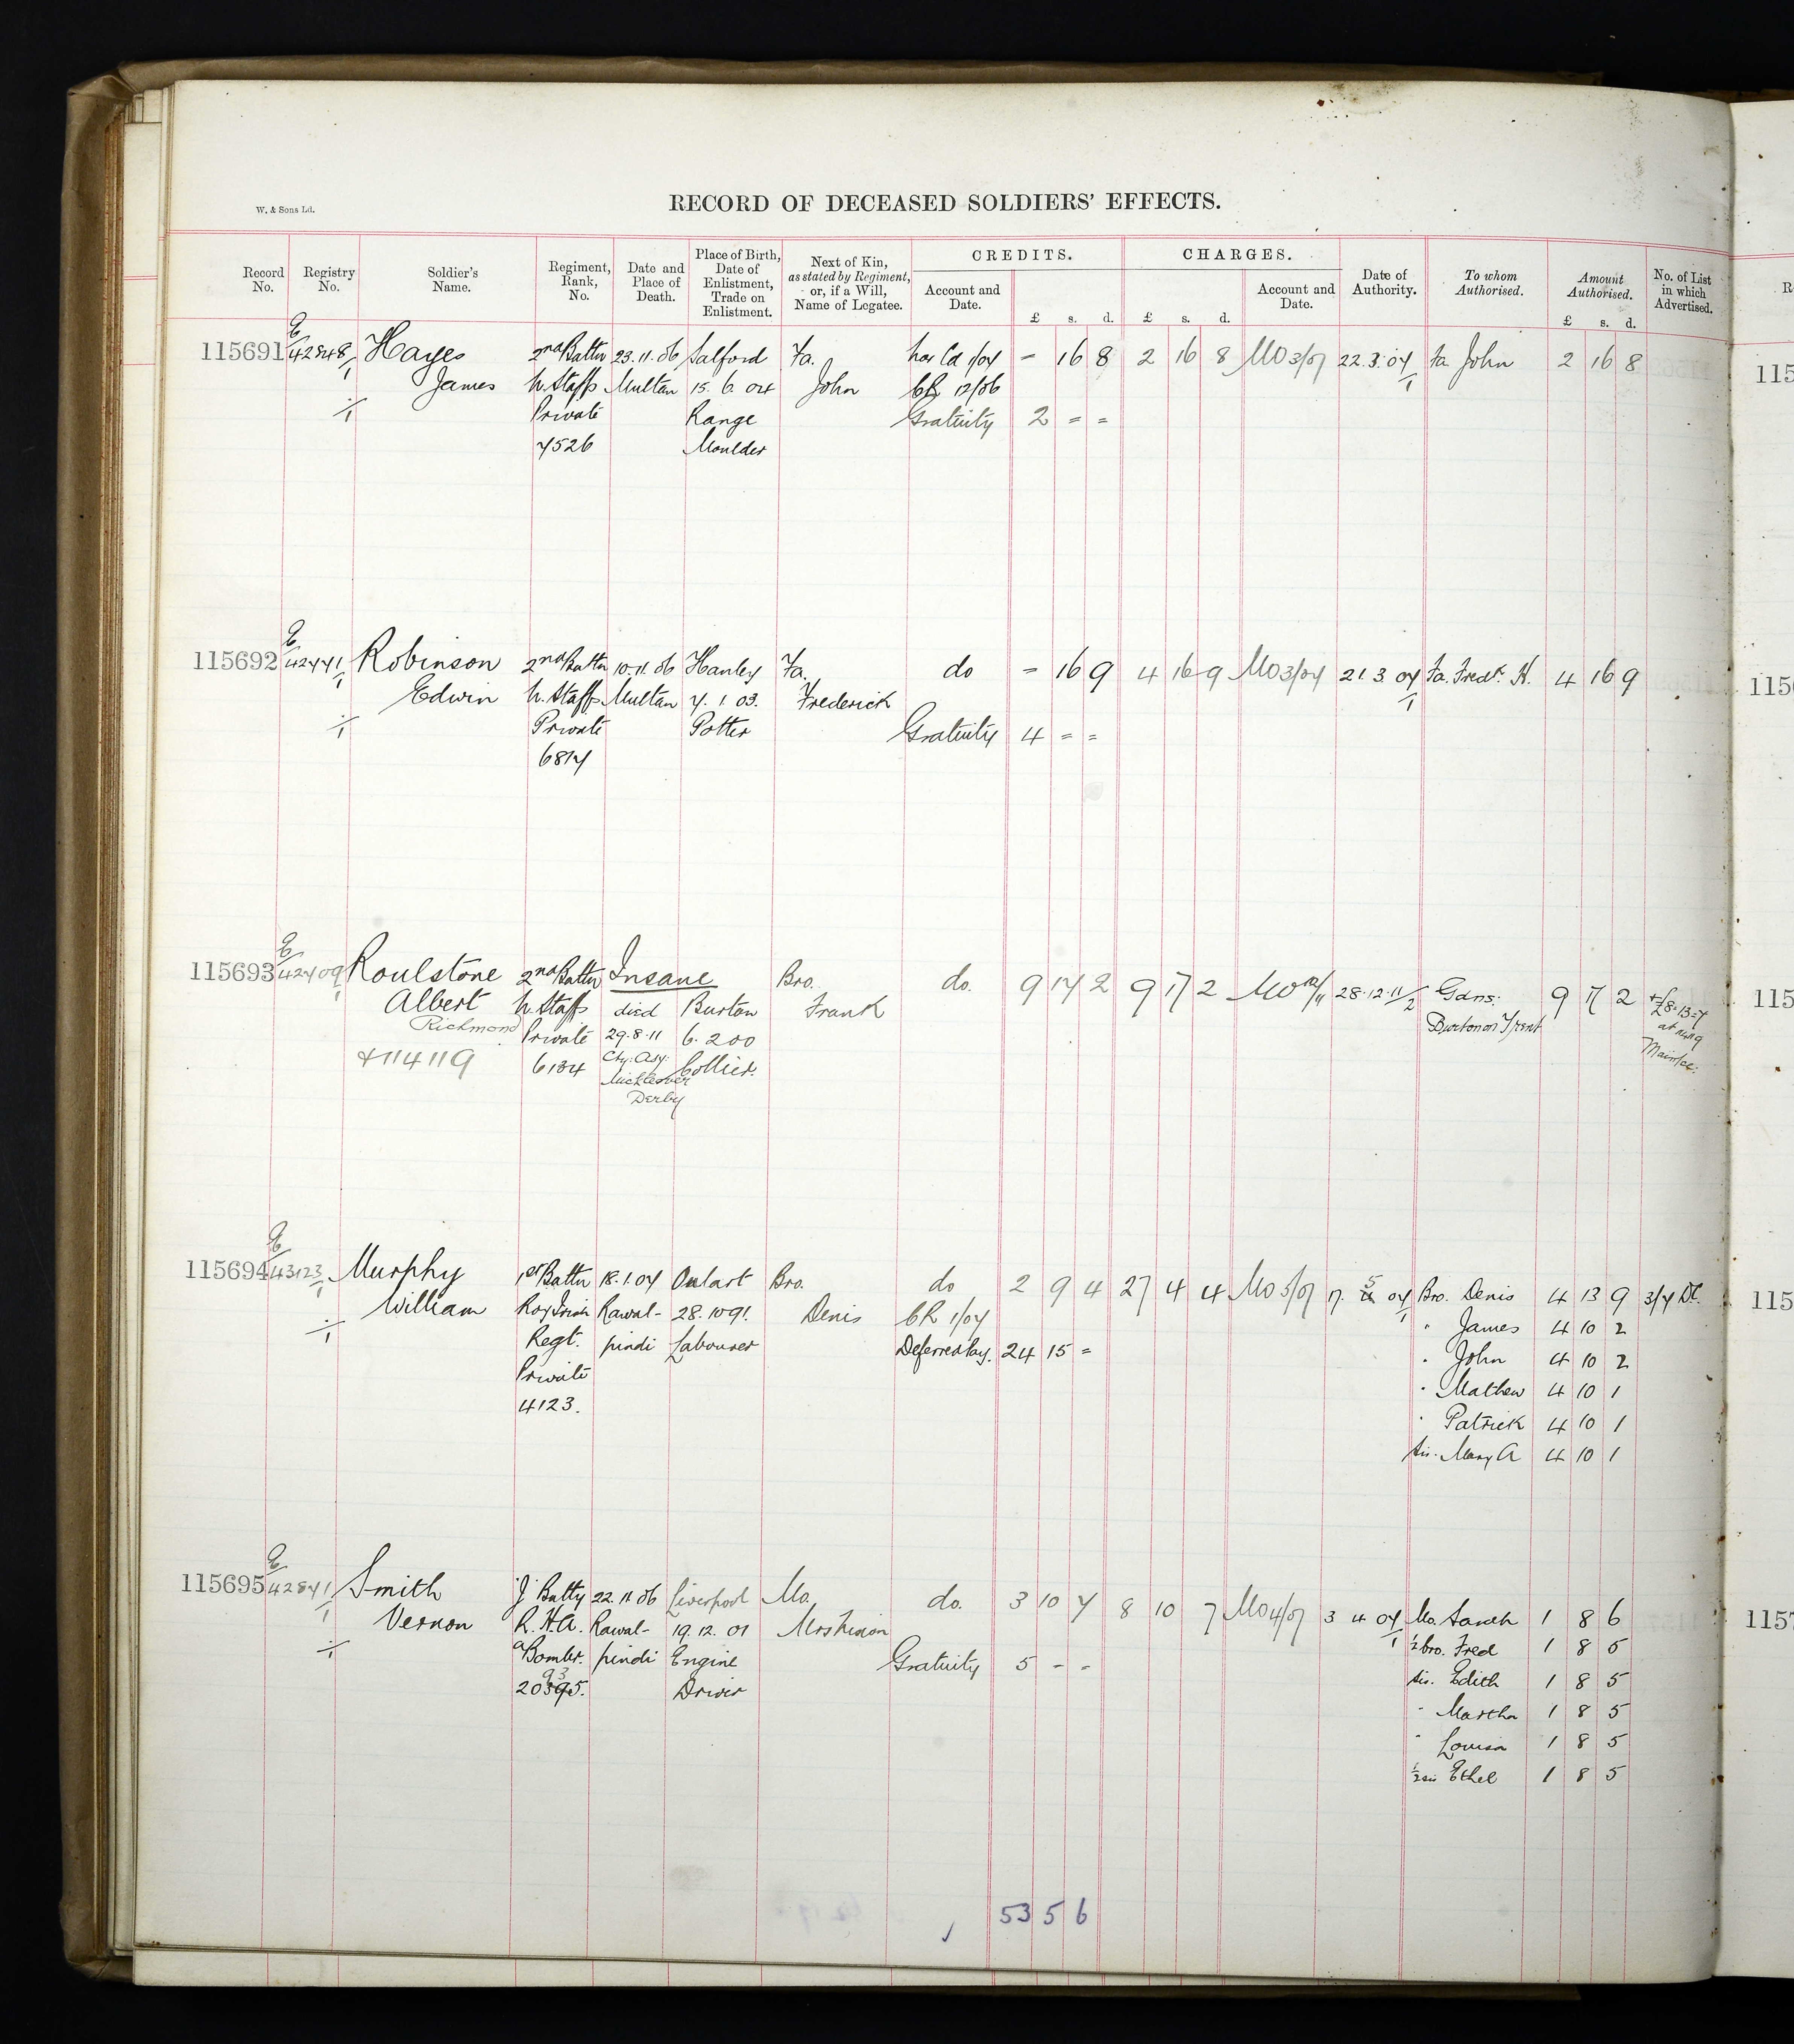 W. & Sons Ld.
RECORD OF DECEASED SOLDIERS' EFFECTS.
Record No. Registry No. Soldier's Name. Regiment, Rank, No. Date and Place of Death. Place of Birth, Date of Enlistment, Trade on Enlistment. Next of Kin, as stated by Regiment, or, if a Will, Name of Legatee. CREDITS. Account and Date. £ s. d. CHARGES. £ s. d. Account and Date. Date of Authority. To whom Authorised. Amount Authorised. £ s. d. No. of List in which Advertised.
E
115691 42848/1 Hayes 2nd Battn 23.11.06 Salford Fa. 1/07 - 16 8 2 16 8 MO 3/07 22.3.07 Fa. John 2 16 8
James N. Staffs Multan 15. 6. 04 John CR 12/06
Private Range Gratuity 2 = =
7526 Moulder
E
115692 42771/1 Robinson 2nd Battn 10.11.06 Hanley Fa. do - 16 9 4 16 9 MO 3/07 21.3.07 Fa. Fredk. H. 4 16 9
Edwin N. Staffs Multan 7. 1. 03. Frederick
Private Potter Gratuity 4 = =
6817
E
115693 42709/1 Roulstone 2nd Battn Insane Bro. do. 9 17 2 9 17 2 MO 12/11 28.12.11/2 Gdns: 9 17 2 +£8=13=7
Albert N. Staffs died Burton Frank Burton on Trent
Richmond Private 29.8.11 6. 2 00 Maintce:
+114119 6134 Cty: Asy: Collier.
Mickleover
Derby
E
115694 43123/1 Murphy 1st Battn 18.1.07 Oulart Bro. do 2 9 4 27 4 4 MO 5/07 17. 5 07 Bro. Denis 4 13 9 3/7 Dt.
William Roy Irish Rawal- 28.10 91. Denis CR 1/07 " James 4 10 2
Regt. pindi Labourer Deferred Pay. 24 15 = " John 4 10 2
Private " Mathew 4 10 1
4123. " Patrick 4 10 1
Sis. Mary A 4 10 1
E
115695 42871/1 Smith 'J' Batty 22.11.06 Liverpool Mo. do. 3 10 7 8 10 7 MO 4/07 3 4 07 Mo. Sarah 1 8 6
Vernon R.H.A. Rawal- 19.12.01 ½ bro. Fred 1 8 5
a Bombr. pindi Engine Gratuity 5 - - Sis. Edith 1 8 5
Driver " Martha 1 8 5
" Louisa 1 8 5
½ sis Ethel 1 8 5
53 5 6
115
115
115